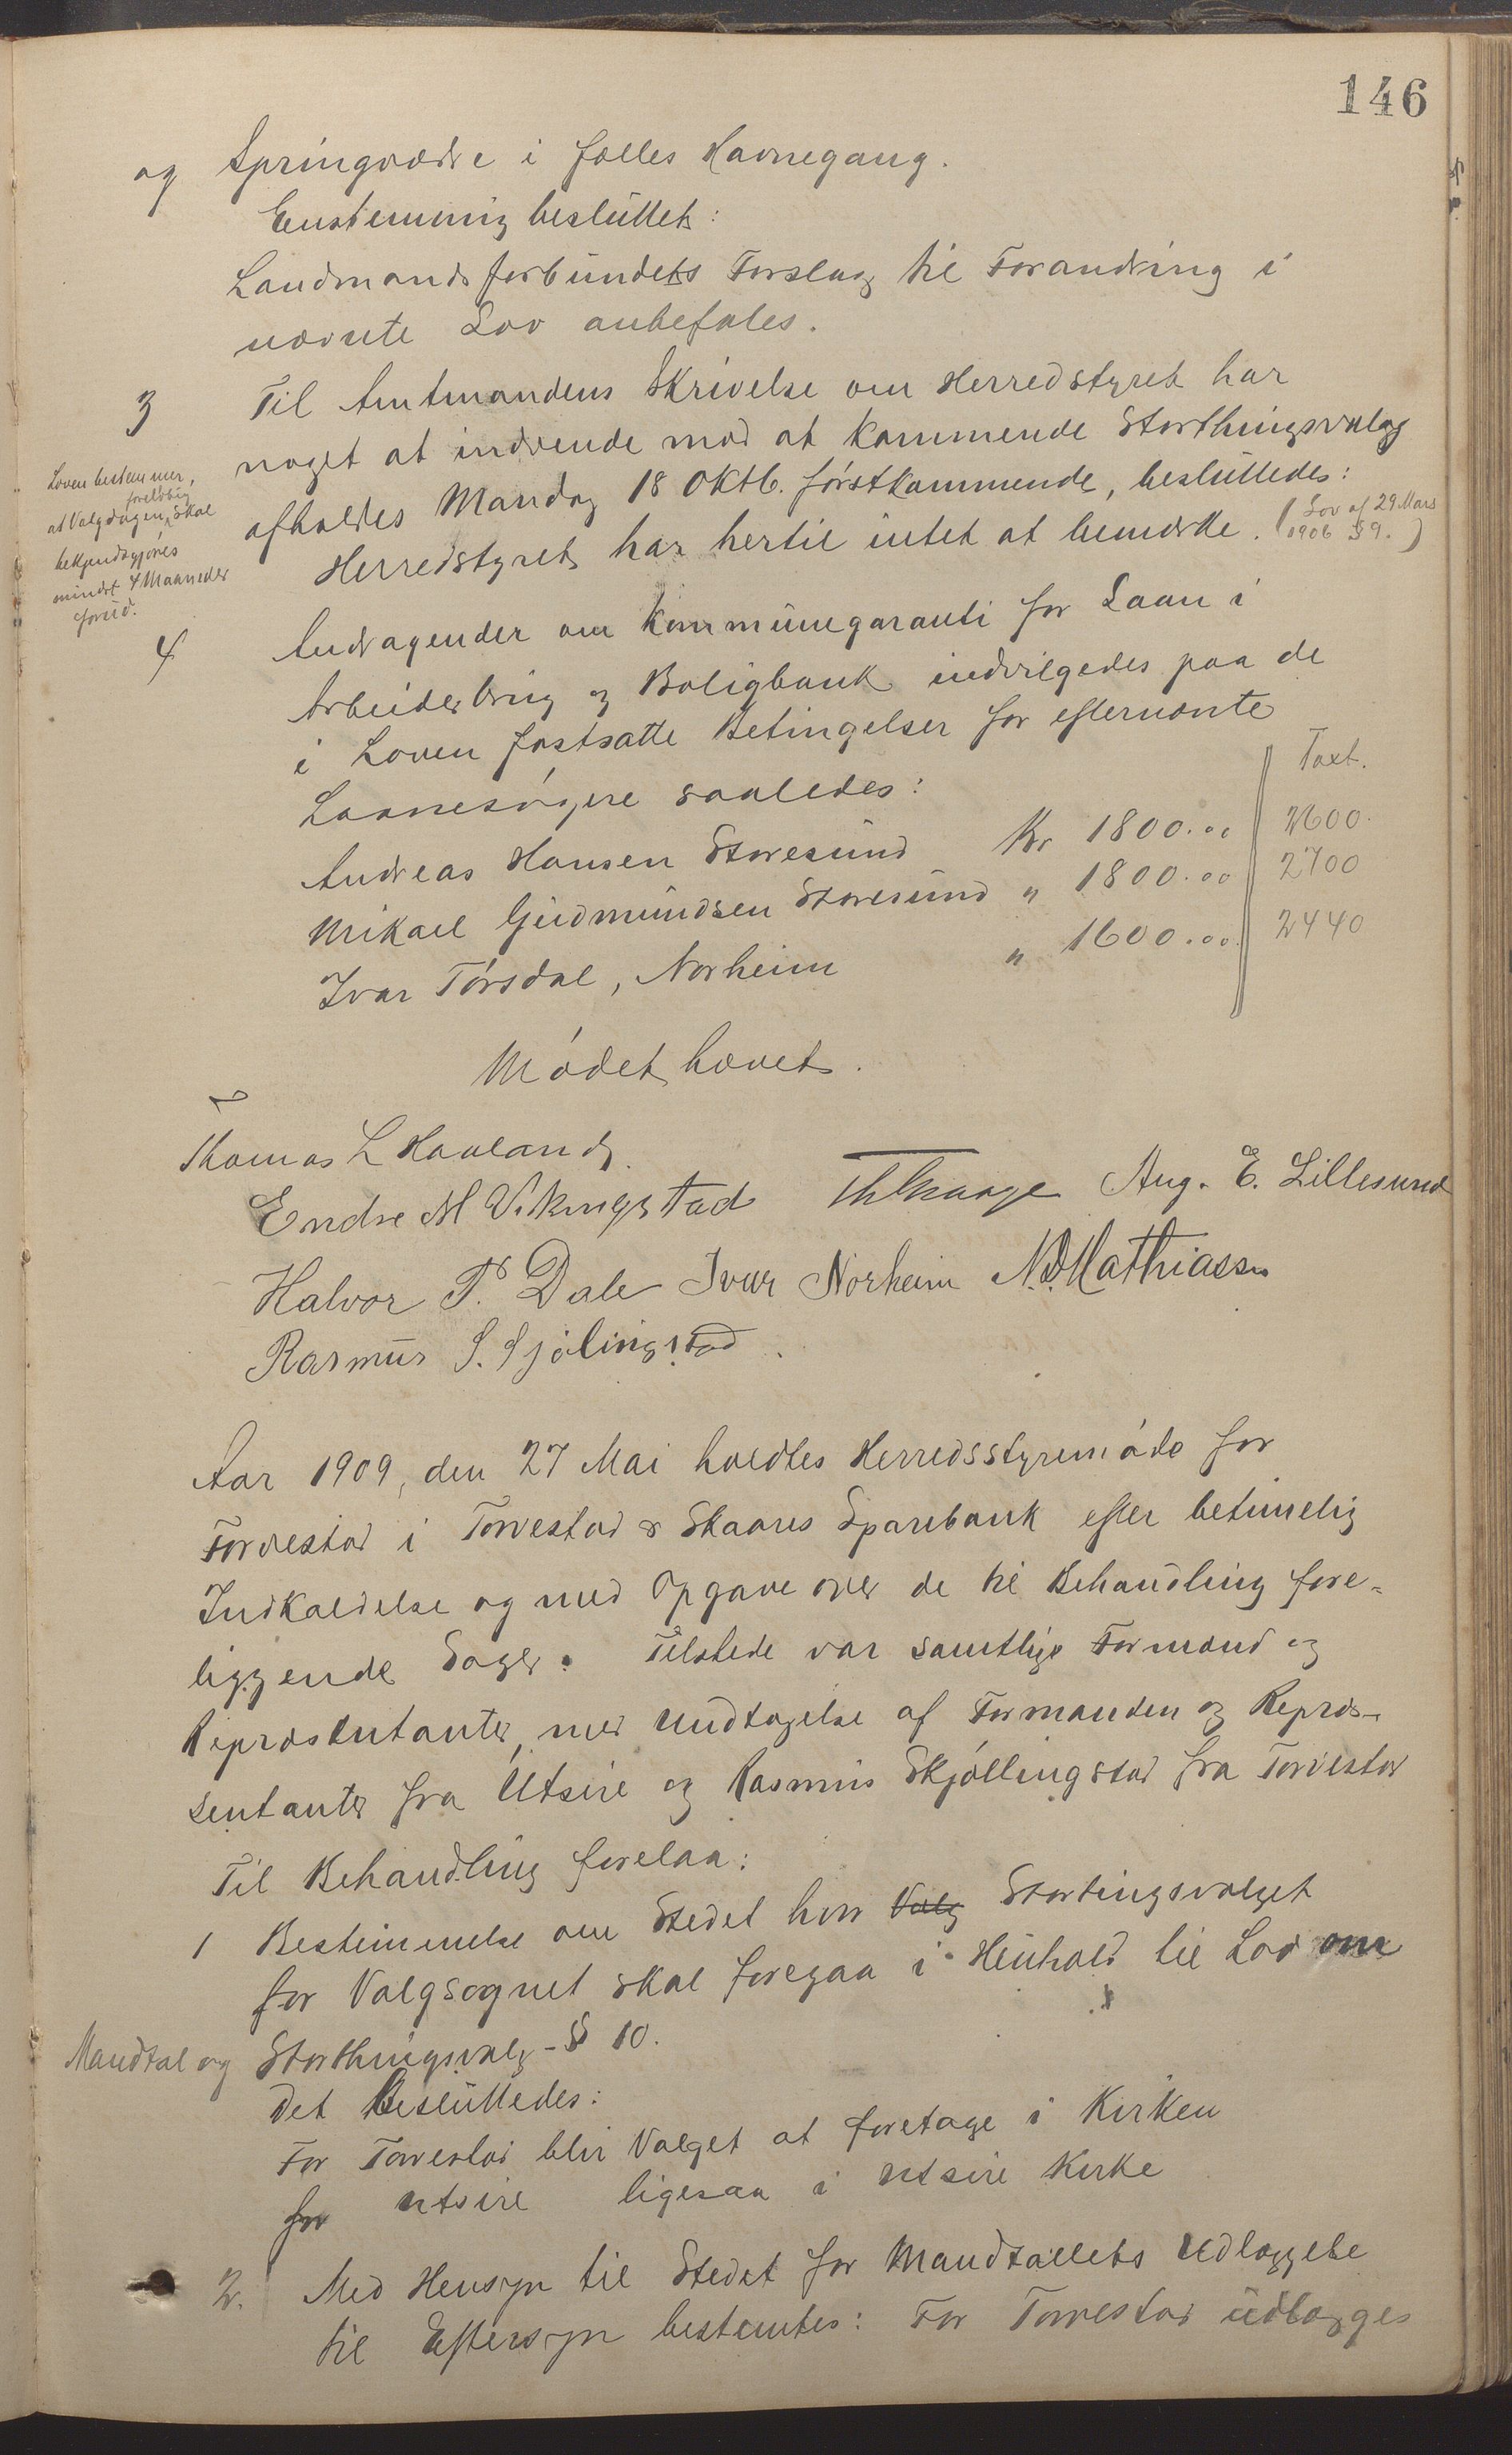 146
og Springvædre i fælles Havnegang.
Enstemmig besluttet:
Landmandsforbundets Forslag til Forandring i
nævnte Lov anbefales.
3 Til Amtmandens Skrivelse om Herredstyret har
noget at indvende mod at kommende Storthingsvalg
afholdes Mandag 18 Oktb. førstkommende, besluttedes:
Herredstyret har hertil intet at bemærke. (Lov af 29 Mars
1906 § 9.)
Loven bestemmer,
at Valgdagen foreløbig skal
bekjendtgjøres
mindst 4 Maaneder
forud.
4 Andragender om Kommunegaranti for Laan i
Arbeiderbrug og Boligbank indvilgedes paa de
i Loven fastsatte Betingelser for efternævnte
Laanesøgere saaledes: Taxt.
Andreas Hansen Storesund Kr 1800.00 2600.
Mikael Gudmundsen Storesund " 1800.00 2700
Ivar Tørsdal, Norheim " 1600.00 2440
Mødet hævet.
Thomas L Havland
Endre M Vikingstad Aug. E. Lillesund
Halvor P. Dale Ivar Norheim N. D. Mathiassen
Rasmus S. Sjølingstad.
Aar 1909, den 27 Mai holdtes Herredsstyremøde for
Torvestad i Torvestad & Skaares Sparebank efter betimelig
Indkaldelse og med Opgave over de til Behandling fore-
liggende Sager. Tilstede var samtlige Formænd og
Repræsentanter, med Undtagelse af Formanden og Repræ-
sentanter fra Utsire og Rasmus Skjøllingstad fra Torvestad
Til Behandling forelaa:
1 Bestemmelse om Stedet hvor Valg Stortingsvalget
for Valgsognet skal foregaa i Henhold til Lov om
Mandtal og Storthingsvalg - § 10.
Det Besluttedes:
For Torvestad blir Valget at foretage i Kirken
for Utsire ligesaa i Utsire Kirke
2. Med Hensyn til Stedet for Mandtallets Udlæggelse
til Eftersyn bestemtes: For Torvestad udlægges